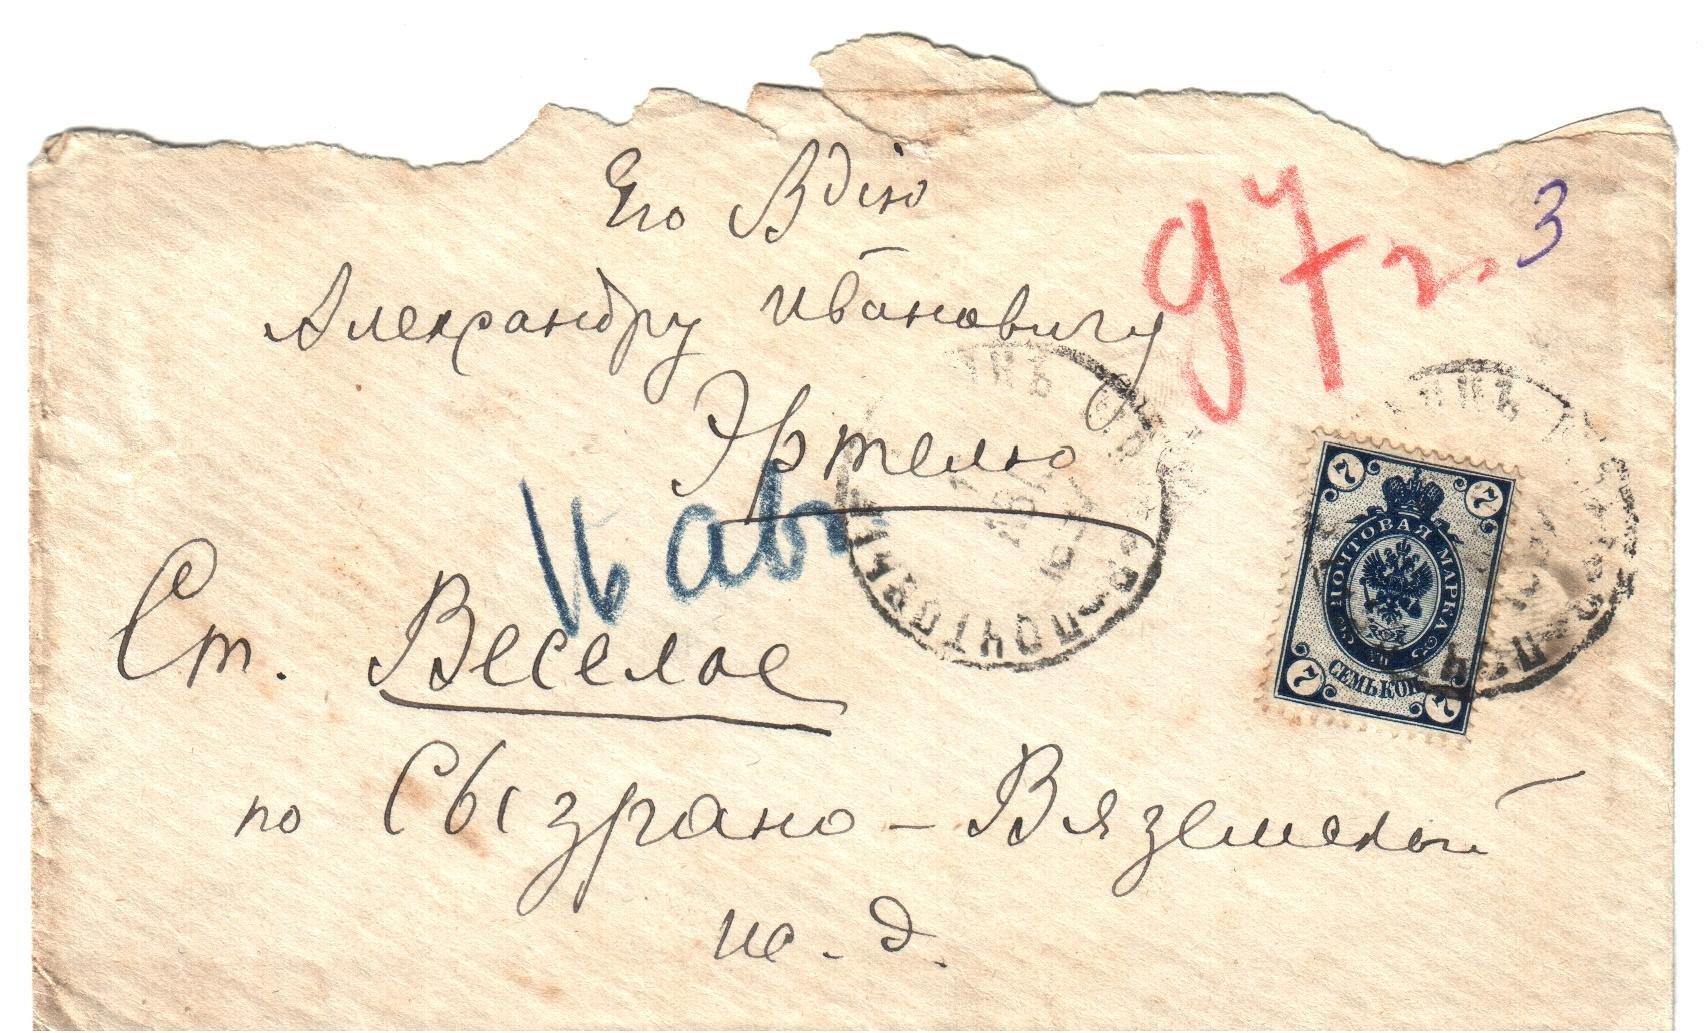 Его Вдію
97 г.
3
Александру Ивановичу
Эртелю
16 ав
Ст. Веселое
по Сызрано-Вяземской
ж. д.
7 7
ПОЧТОВАЯ МАРКА
СЕМЬ КОП
7 7
ПОЧТОВЫЙ